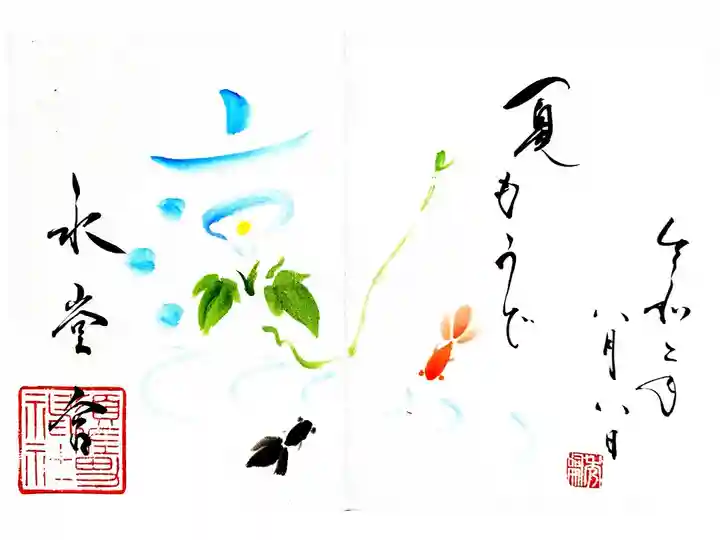 令和二年
八月八日
夏もうで
涼
水堂宮